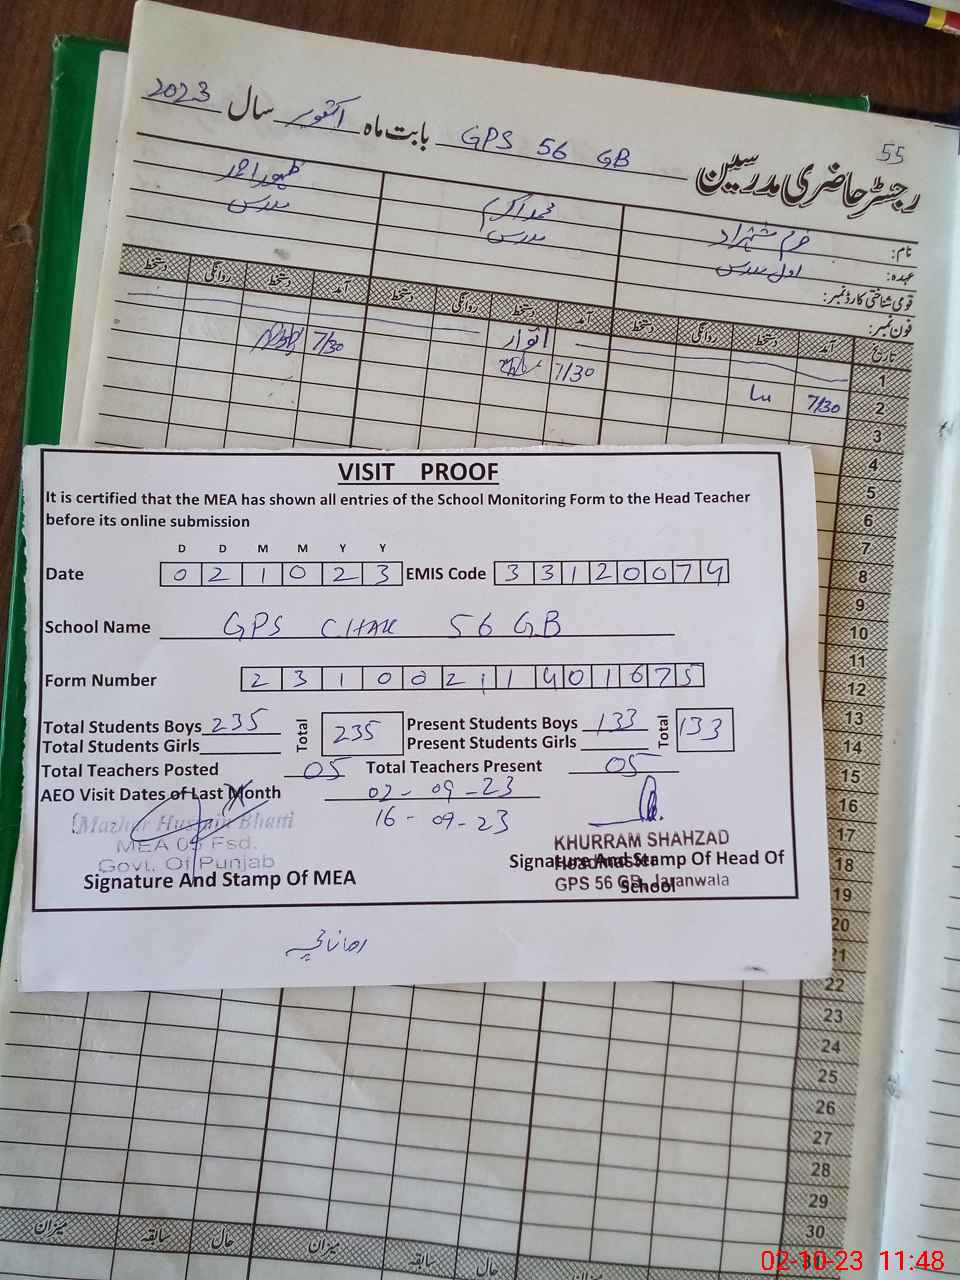 55
رجسٹر حاضری مدرسین GPS 56 GB بابت ماہ اکتوبر سال 2023
نام: خرم شہزاد محمد اکرم ظہور احمد
عہدہ: اول مدرس مدرس مدرس
قومی شناختی کارڈ نمبر:
فون نمبر:
تاریخ آمد دستخط روانگی دستخط آمد دستخط روانگی دستخط آمد دستخط روانگی دستخط
1 اتوار
2 7/30 7/30 7/30
3
4
5
6
7
8
9
10
11
12
13
14
15
16
17
18
19
20
21
22
23
24
25
26
27
28
29
30
31
میزان سابقہ حال میزان سابقہ حال میزان
VISIT PROOF
It is certified that the MEA has shown all entries of the School Monitoring Form to the Head Teacher
before its online submission
D D M M Y Y
Date 0 2 1 0 2 3 EMIS Code 3 3 1 2 0 0 7 4
School Name GPS CHAK 56 GB
Form Number 2 3 1 0 0 2 1 1 4 0 1 6 7 5
Total Students Boys 235 Total 235 Present Students Boys 133 Total 133
Total Students Girls Present Students Girls
Total Teachers Posted 05 Total Teachers Present 05
AEO Visit Dates of Last Month 02-09-23
16-09-23
Mazhar Hussain Bhatti
MEA 05 Fsd.
Govt. Of Punjab
Signature And Stamp Of MEA
KHURRAM SHAHZAD
Headmaster
GPS 56 GB, Jaranwala
Signature And Stamp Of Head Of
School
02-10-23 11:48